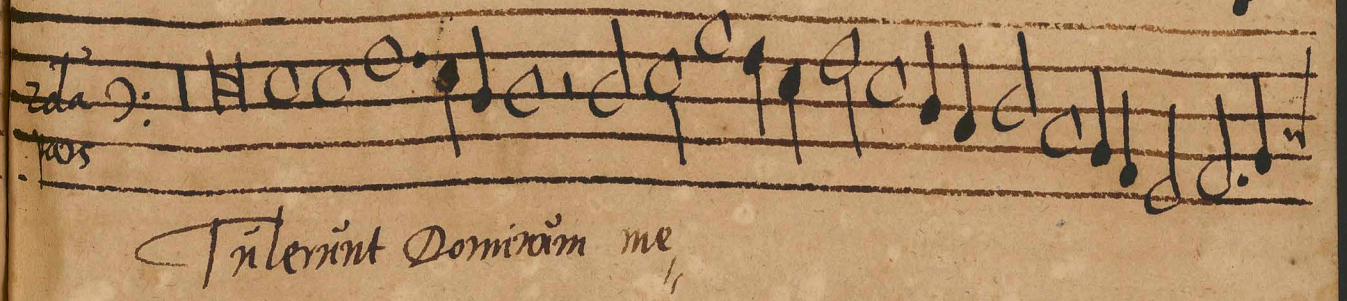 2da
pars
Tulerunt Dominum me